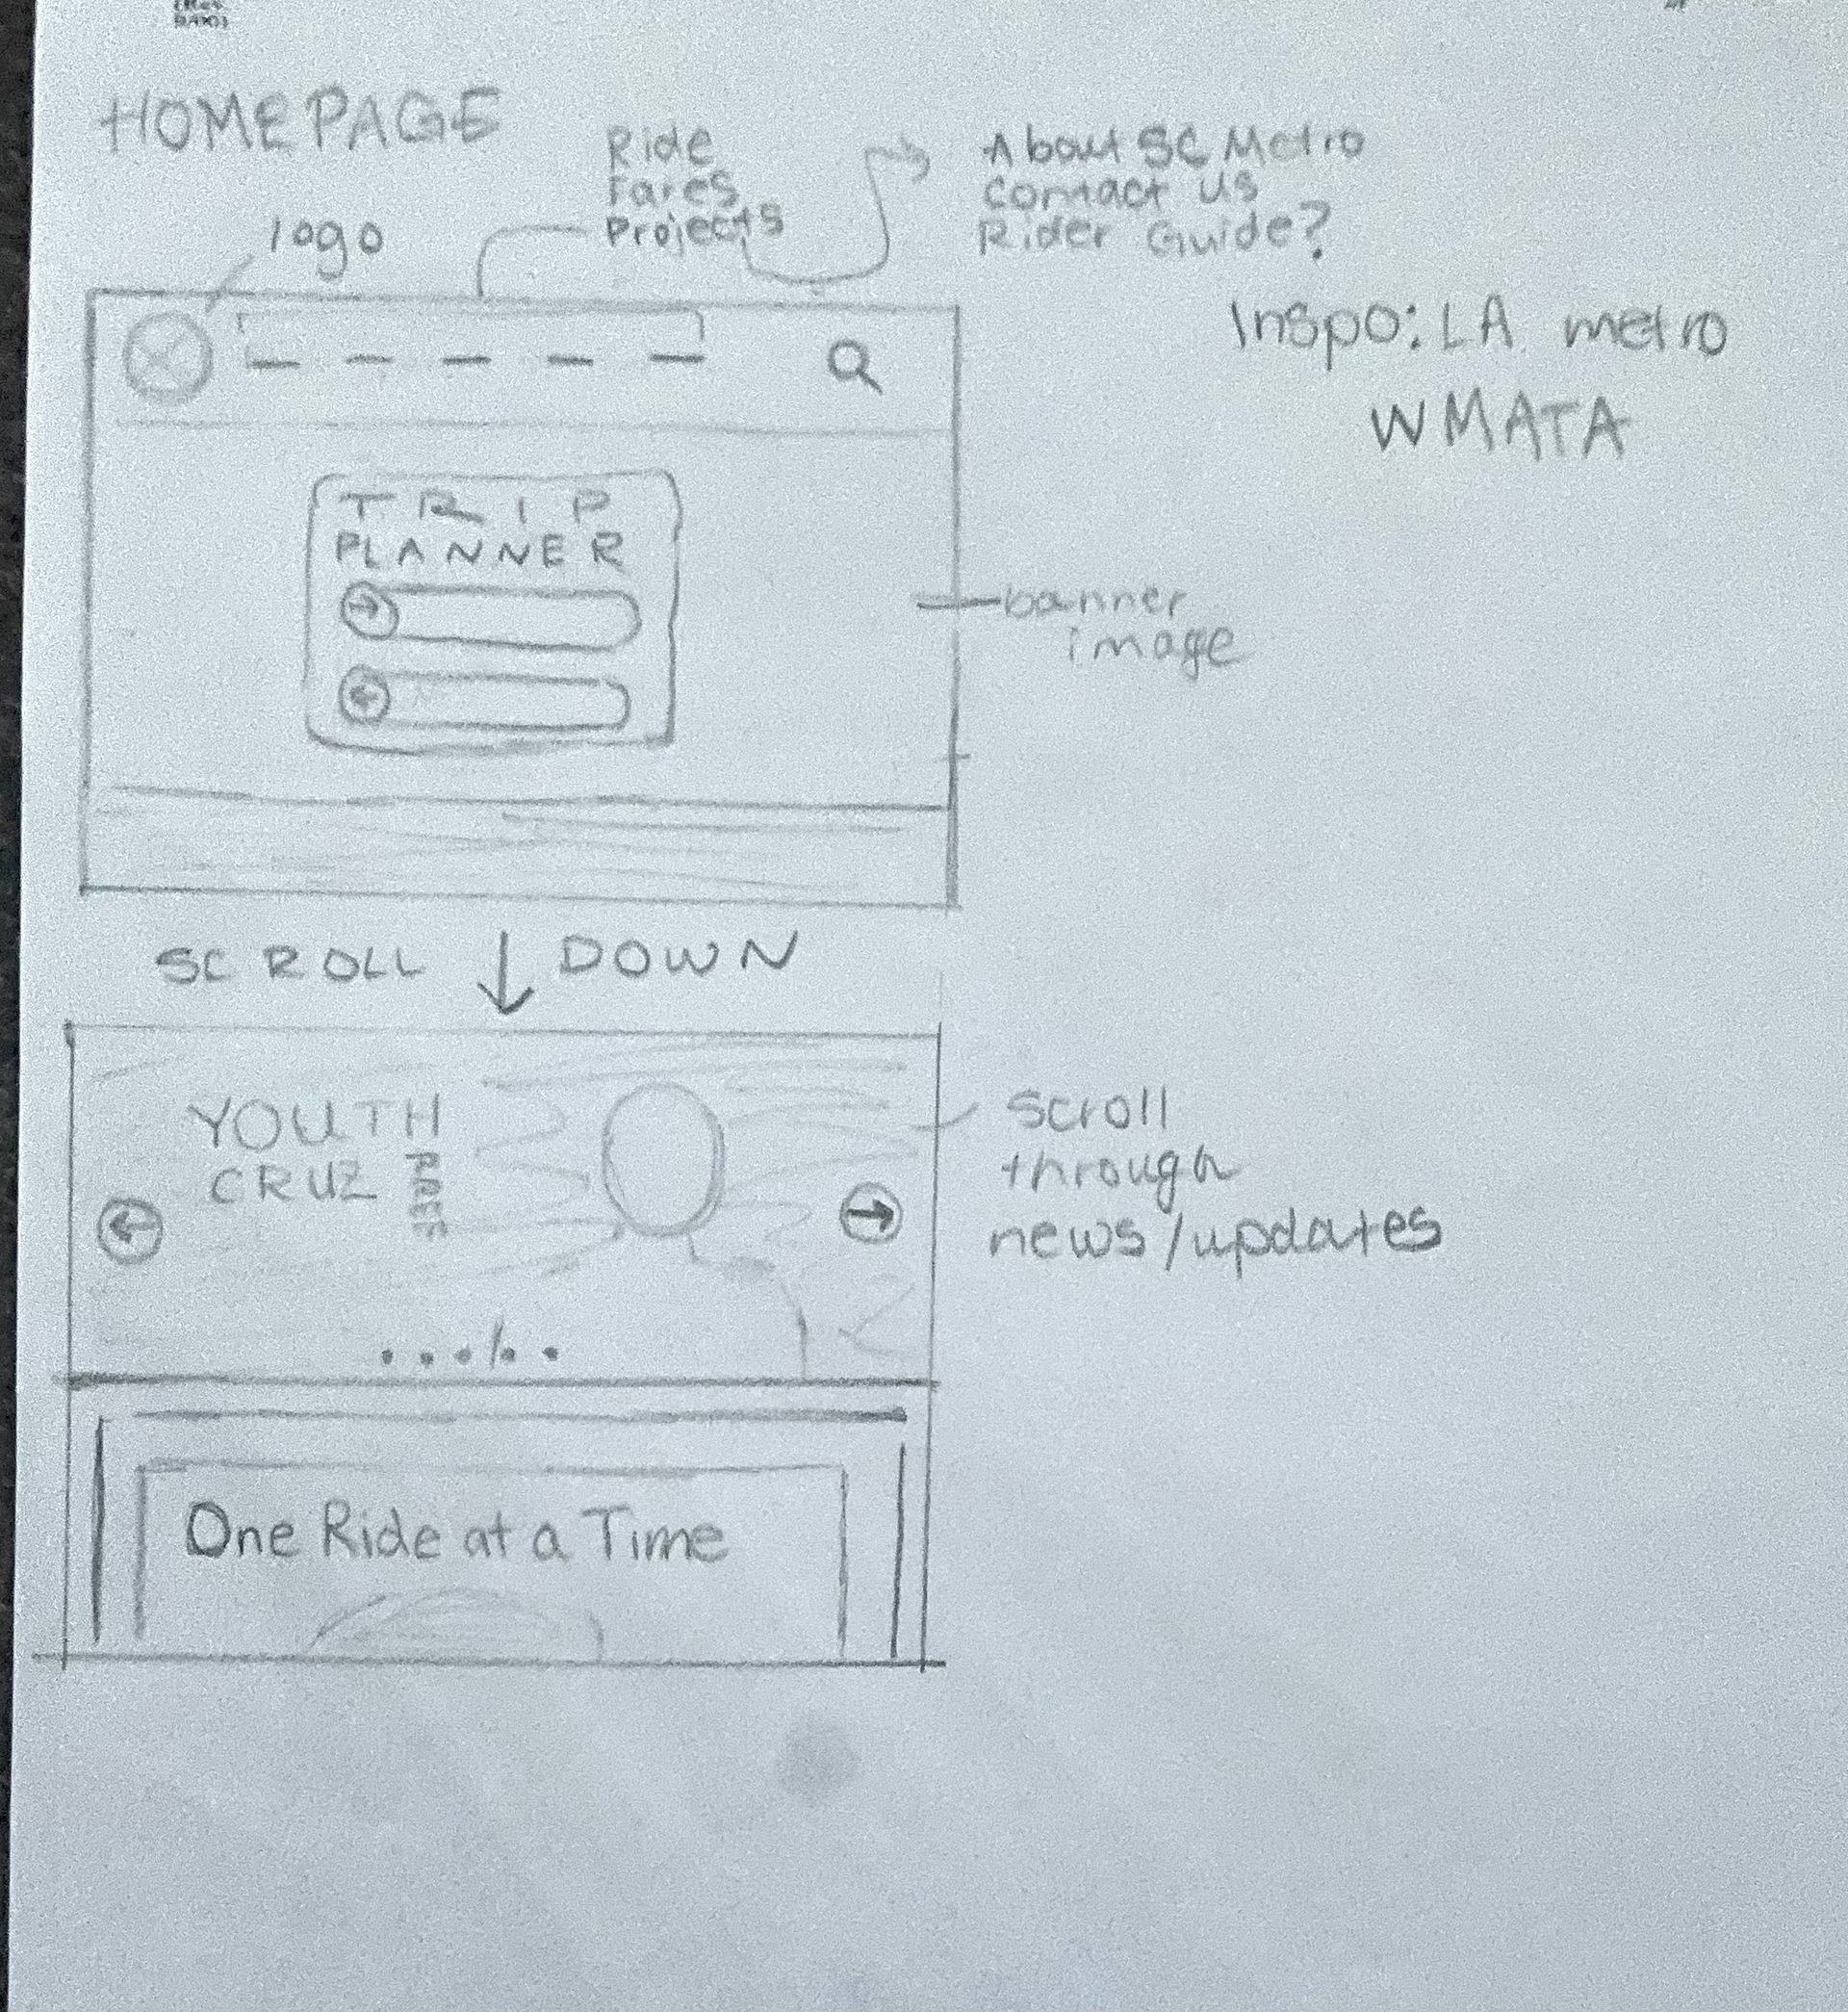 HOMEPAGE
logo
Ride
Fares
Projects
About SC Metro
Contact us
Rider Guide?
Inspo: LA metro
WMATA
TRIP
PLANNER
banner
image
SCROLL DOWN
YOUTH
CRUZ
FREE
scroll
through
news/updates
One Ride at a Time